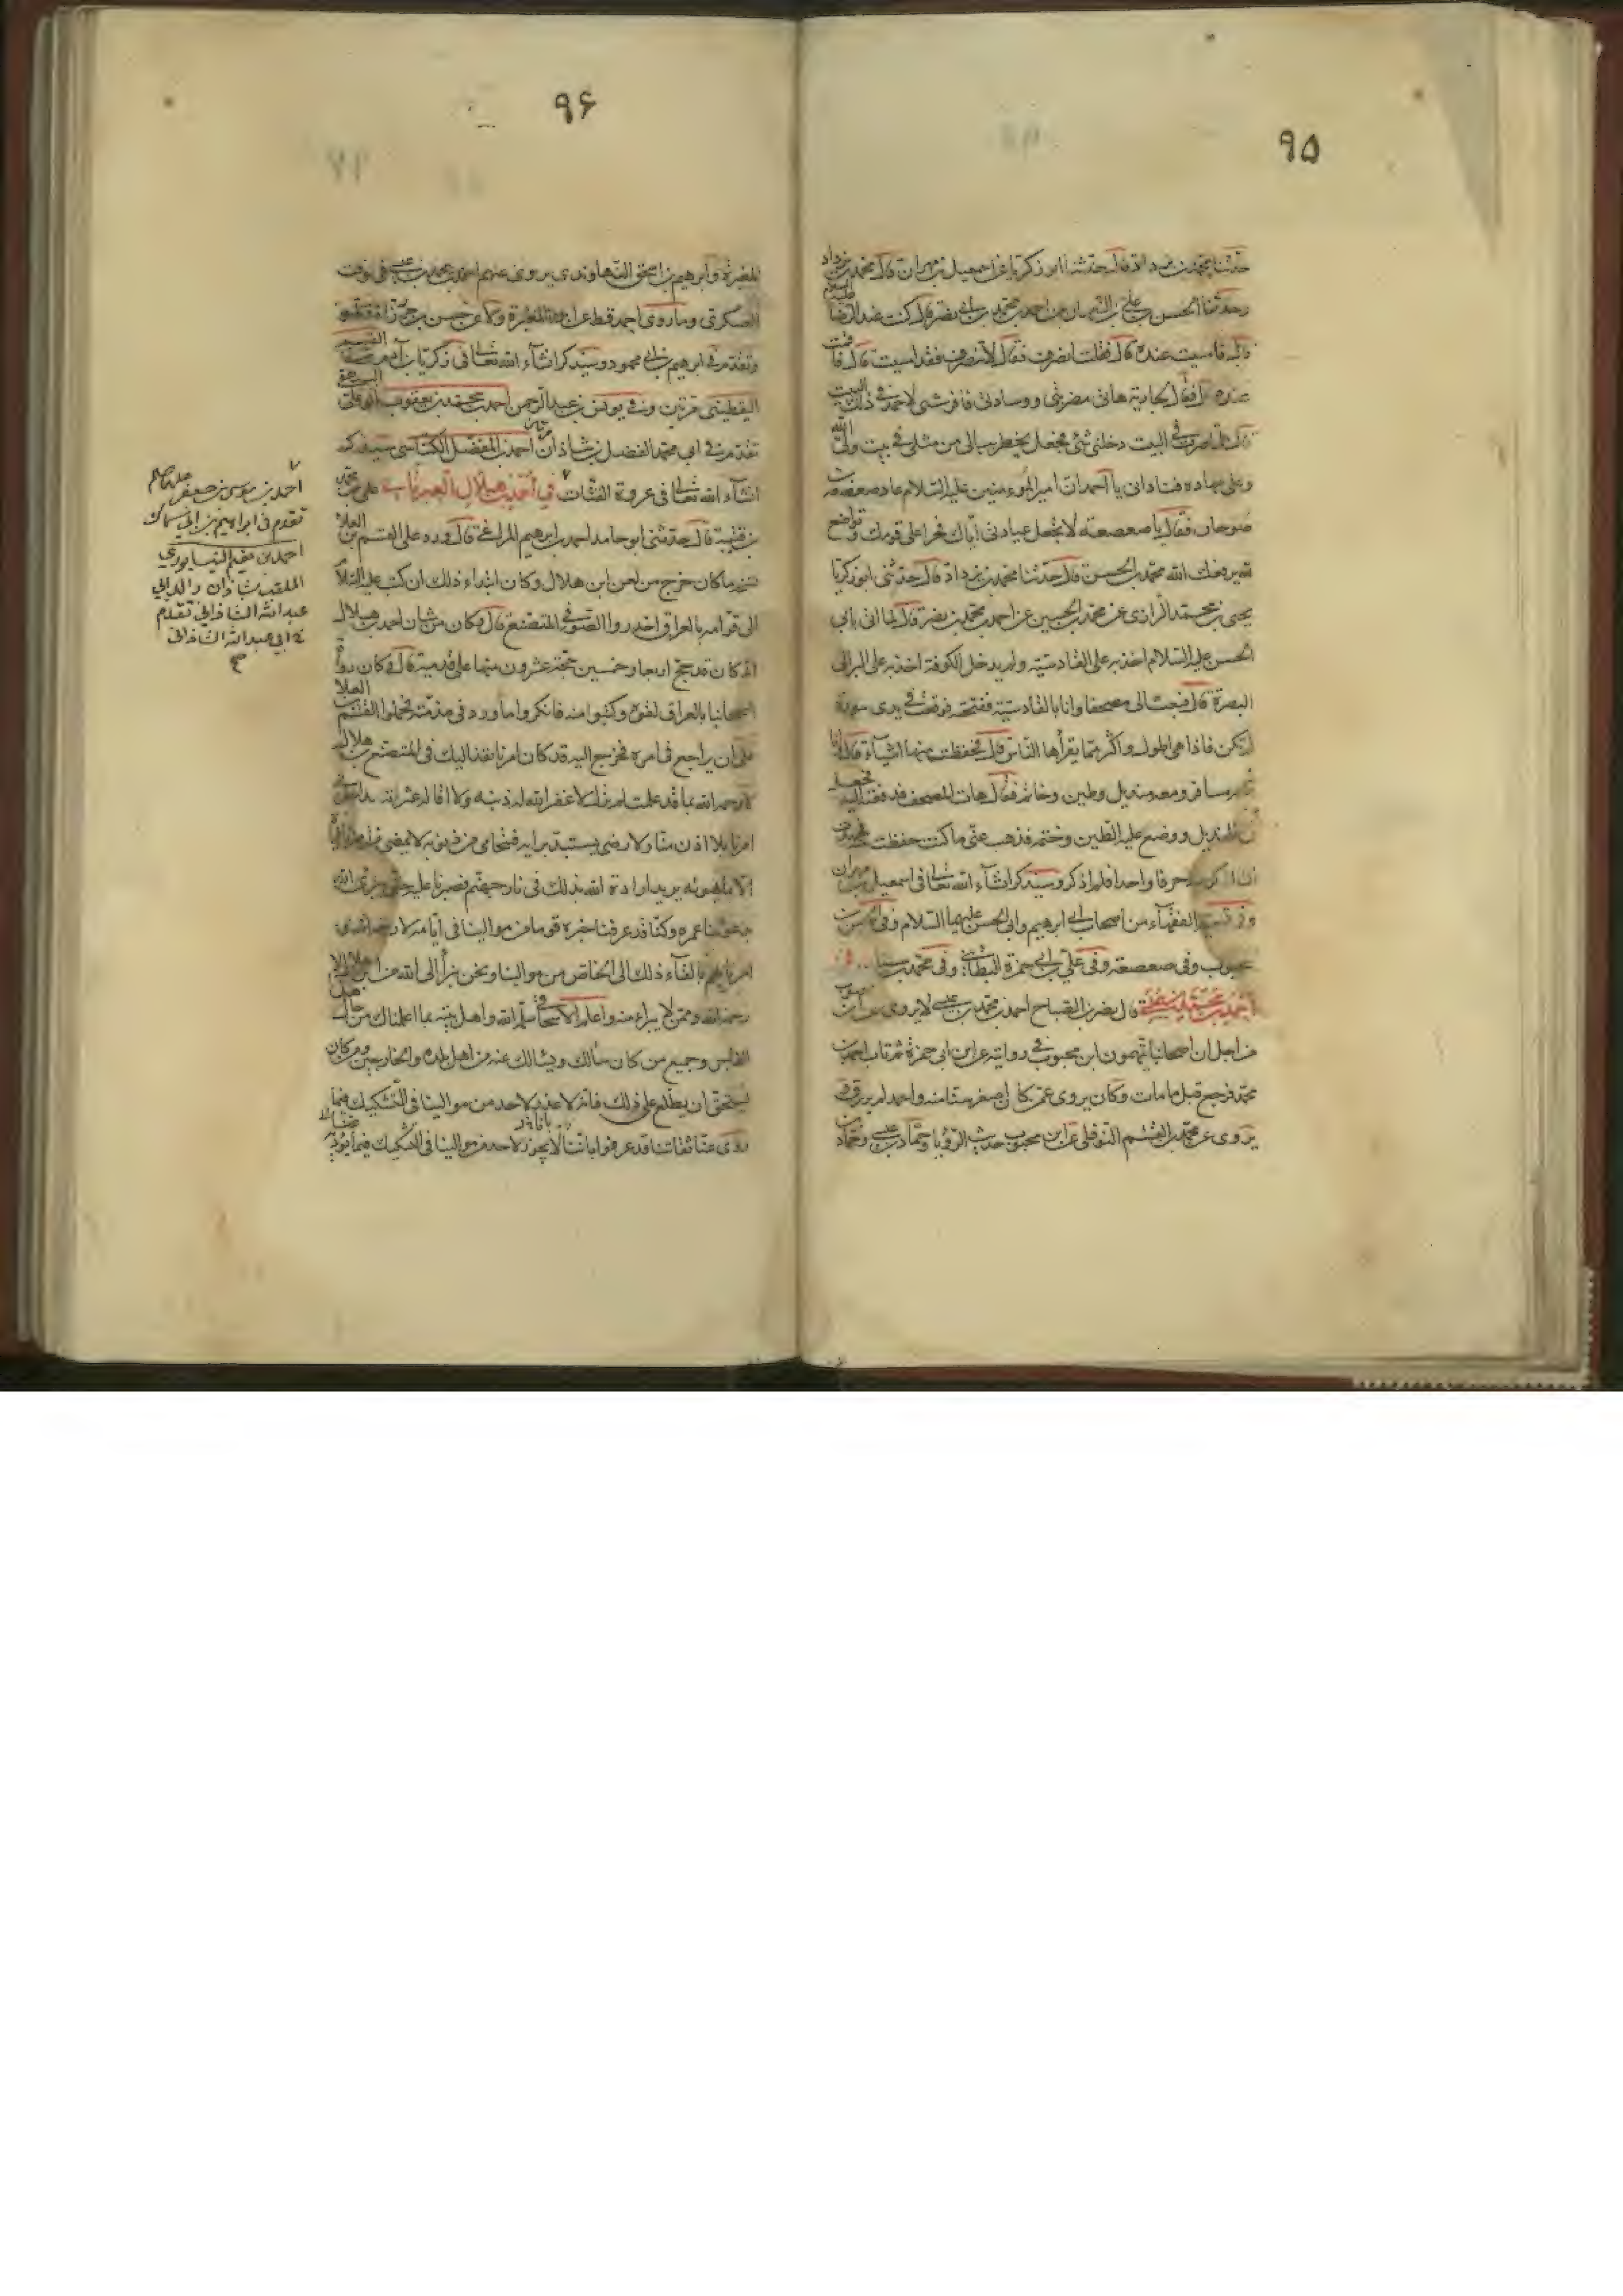 ٩۵
حدثنا محمد بن يزداد قال حدثنا ابو زكريا عن اسمعيل بن مهران قال محمد بن يزداد
وحدثنا الحسن بن علي بن النعمان عن احمد بن محمد بن ابي نصر قال كنت عند الرضا عليه السلام
قال فامسيت عنده قال فقلت انصرف فقال لا تنصرف فقد امسيت قال فاقمت
عنده قال فقال لجاريته هاتي مضربتي ووسادتي فافرشي لاحمد في ذلك البيت
قال فلما صرت في البيت دخلني شئ فجعل يخطر ببالي من مثلي في بيت ولي الله
وعلى مهاده فناداني يا احمد ان امير المؤمنين عليه السلام عاد صعصعة بن
صوحان فقال يا صعصعة لا تجعل عيادتي اياك فخرا على قومك وتواضع
لله يرفعك الله محمد بن الحسن قال حدثنا محمد بن يزداد قال حدثني ابو زكريا
يحيى بن محمد الرازي عن محمد بن الحسين عن احمد بن محمد بن ابي نصر قال لما اتي بابي
الحسن عليه السلام اخذ به على القادسية ولم يدخل الكوفة اخذ به على البر الى
البصرة قال فبعث الي مصحفا وانا بالقادسية ففتحته فوقعت في يدي سورة
لم يكن فاذا هي اطول واكثر مما يقرأها الناس قال فحفظت منها اشياء قال فاتا
ني مسافر ومعه منديل وطين وخاتم فقال هات المصحف فدفعته اليه فجعله
في المنديل ووضع عليه الطين وختمه فذهب عني ما كنت حفظت فجهدت
ان اذكر منه حرفا واحدا فلم اذكر وسيذكر انشاء الله تعالى في اسمعيل بن مهران
وفي تسمية الفقهاء من اصحاب ابي ابرهيم وابي الحسن عليهما السلام وفي الحسن بن
محبوب وفي صعصعة وفي علي بن ابي حمزة البطائني وفي محمد بن سنان
احمد بن محمد بن عيسى قال نصر بن الصباح احمد بن محمد بن عيسى لا يروي عن ابن محبوب
من اجل ان اصحابنا يتهمون ابن محبوب في روايته عن ابن ابي حمزة ثم تاب احمد بن
محمد فرجع قبل ما مات وكان يروي عمن كان اصغر سنا منه واحمد لم يرزق
يروي عن محمد بن القسم النوفلي عن ابن محبوب حديث الرؤيا وحماد بن عيسى وحماد بن
٩۶
المغيرة وابرهيم بن اسحق النهاوندي يروي عنهم احمد بن محمد بن عيسى في وقت
العسكري وما روى احمد قط عن ابن المغيرة ولا عن حسن بن خرزاذ
وتقدم في ابرهيم بن ابي محمود وسيذكر انشاء الله تعالى في زكريا بن آدم
اليقطيني مرتين وفي يونس بن عبد الرحمن احمد بن محمد بن يعقوب البيهقي
تقدم في ابي محمد الفضل بن شاذان احمد بن المفضل الكناسي سيذكر
انشاء الله تعالى في عروة القتات في احمد بن هلال العبرتائي علي بن محمد
بن قتيبة قال حدثني ابو حامد احمد بن ابرهيم المراغي قال ورد على القسم بن العلا
نسخة ما كان خرج من لعن ابن هلال وكان ابتداء ذلك ان كتب عليه السلام
الى قوامه بالعراق احذروا الصوفي المتصنع قال وكان من شان احمد بن هلال
انه كان قد حج اربعا وخمسين حجة عشرون منها على قدميه قال وكان رواة
اصحابنا بالعراق لقوه وكتبوا منه فانكروا ما ورد في مذمته فحملوا القسم بن العلا
على ان يراجع في امره فخرج اليه قد كان امرنا نفذ اليك في المتصنع ابن هلال
لا رحمه الله بما قد علمت لم يزل لا غفر الله له ذنبه ولا اقاله عثرته يداخل في
امرنا بلا اذن منا ولا رضى يستبد برايه فيتحامى من ديونه لا يمضي من امرنا
الا بما يهويه ويريد اراده الله بذلك في نار جهنم فصبرنا عليه حتى بتر الله
بدعوتنا عمره وكنا قد عرفنا خبره قوما من موالينا في ايامه لا رحمه الله
امرناهم بالقاء ذلك الى الخاص من موالينا ونحن نبرأ الى الله من ابن هلال لا
رحمه الله وممن لا يبرأ منه واعلم الاسحاقي سلمه الله واهل بيته بما اعلمناك من حال
الفاجر وجميع من كان سألك ويسألك عنه من اهل بلده والخارجين ومن كان
يستحق ان يطلع على ذلك فانه لا عذر لاحد من موالينا في التشكيك فيما
روى عنا ثقاتنا قد عرفوا باننا
احمد بن موسى بن جعفر عليه السلام
تقدم في ابراهيم بن ابي سمال
احمد بن نعيم النيسابوري
الملقب بشاذان والد ابي
عبد الله الشاذاني تقدم
في ابي عبد الله الشاذاني